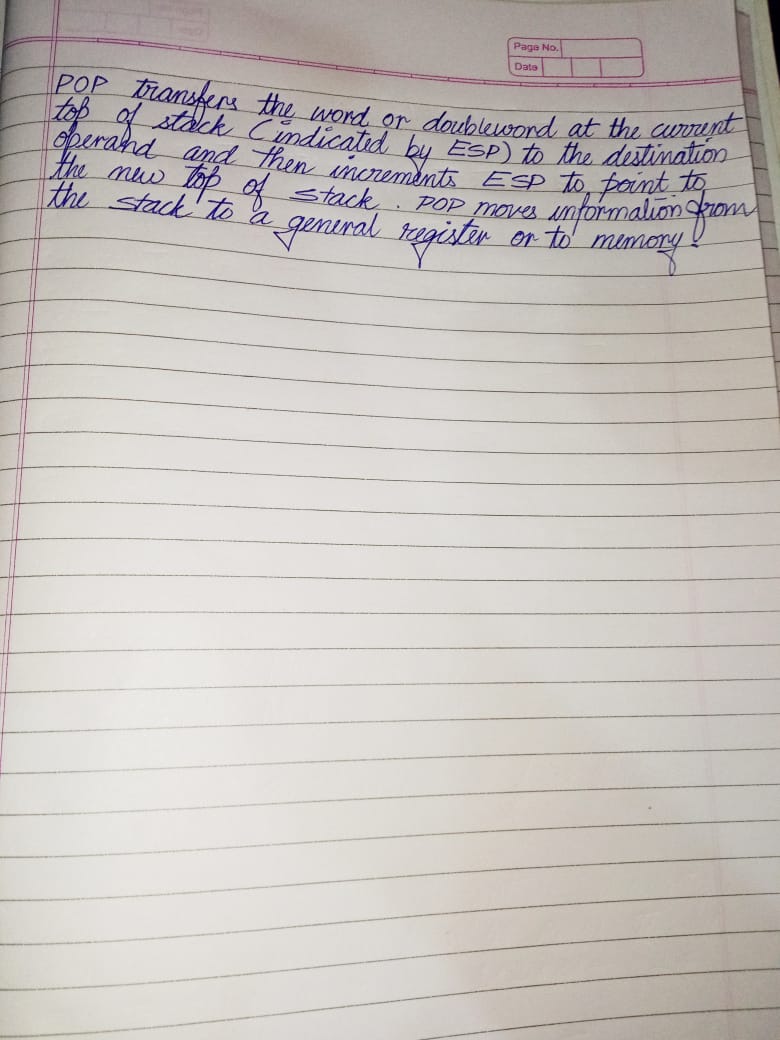 Page No.
Date
POP transfers the word or doubleword at the current
top of stack (indicated by ESP) to the destination
operand and then increments ESP to point to
the new top of stack. POP moves information from
the stack to a general register or to memory.